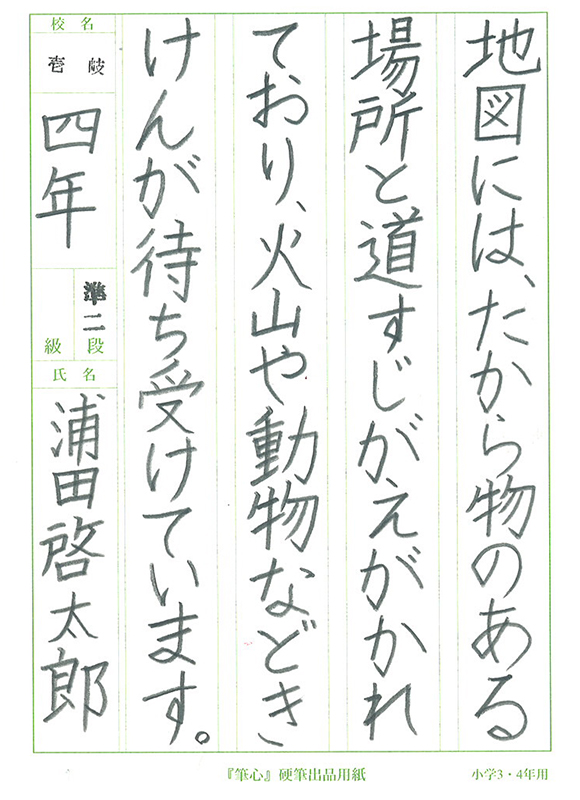 地図には、たから物のある
場所と道すじがえがかれ
ており、火山や動物などき
けんが待ち受けています。
校名
壱岐
四年
準二段
級
氏名
浦田啓太郎
『筆心』硬筆出品用紙
小学3・4年用